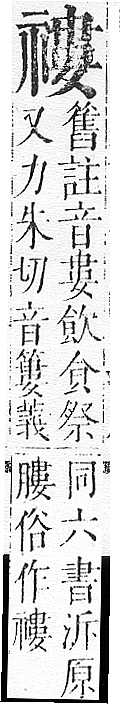 䄛
舊註音婁飲食祭
又力朱切音簍義
同六書泝原
膢俗作䄛